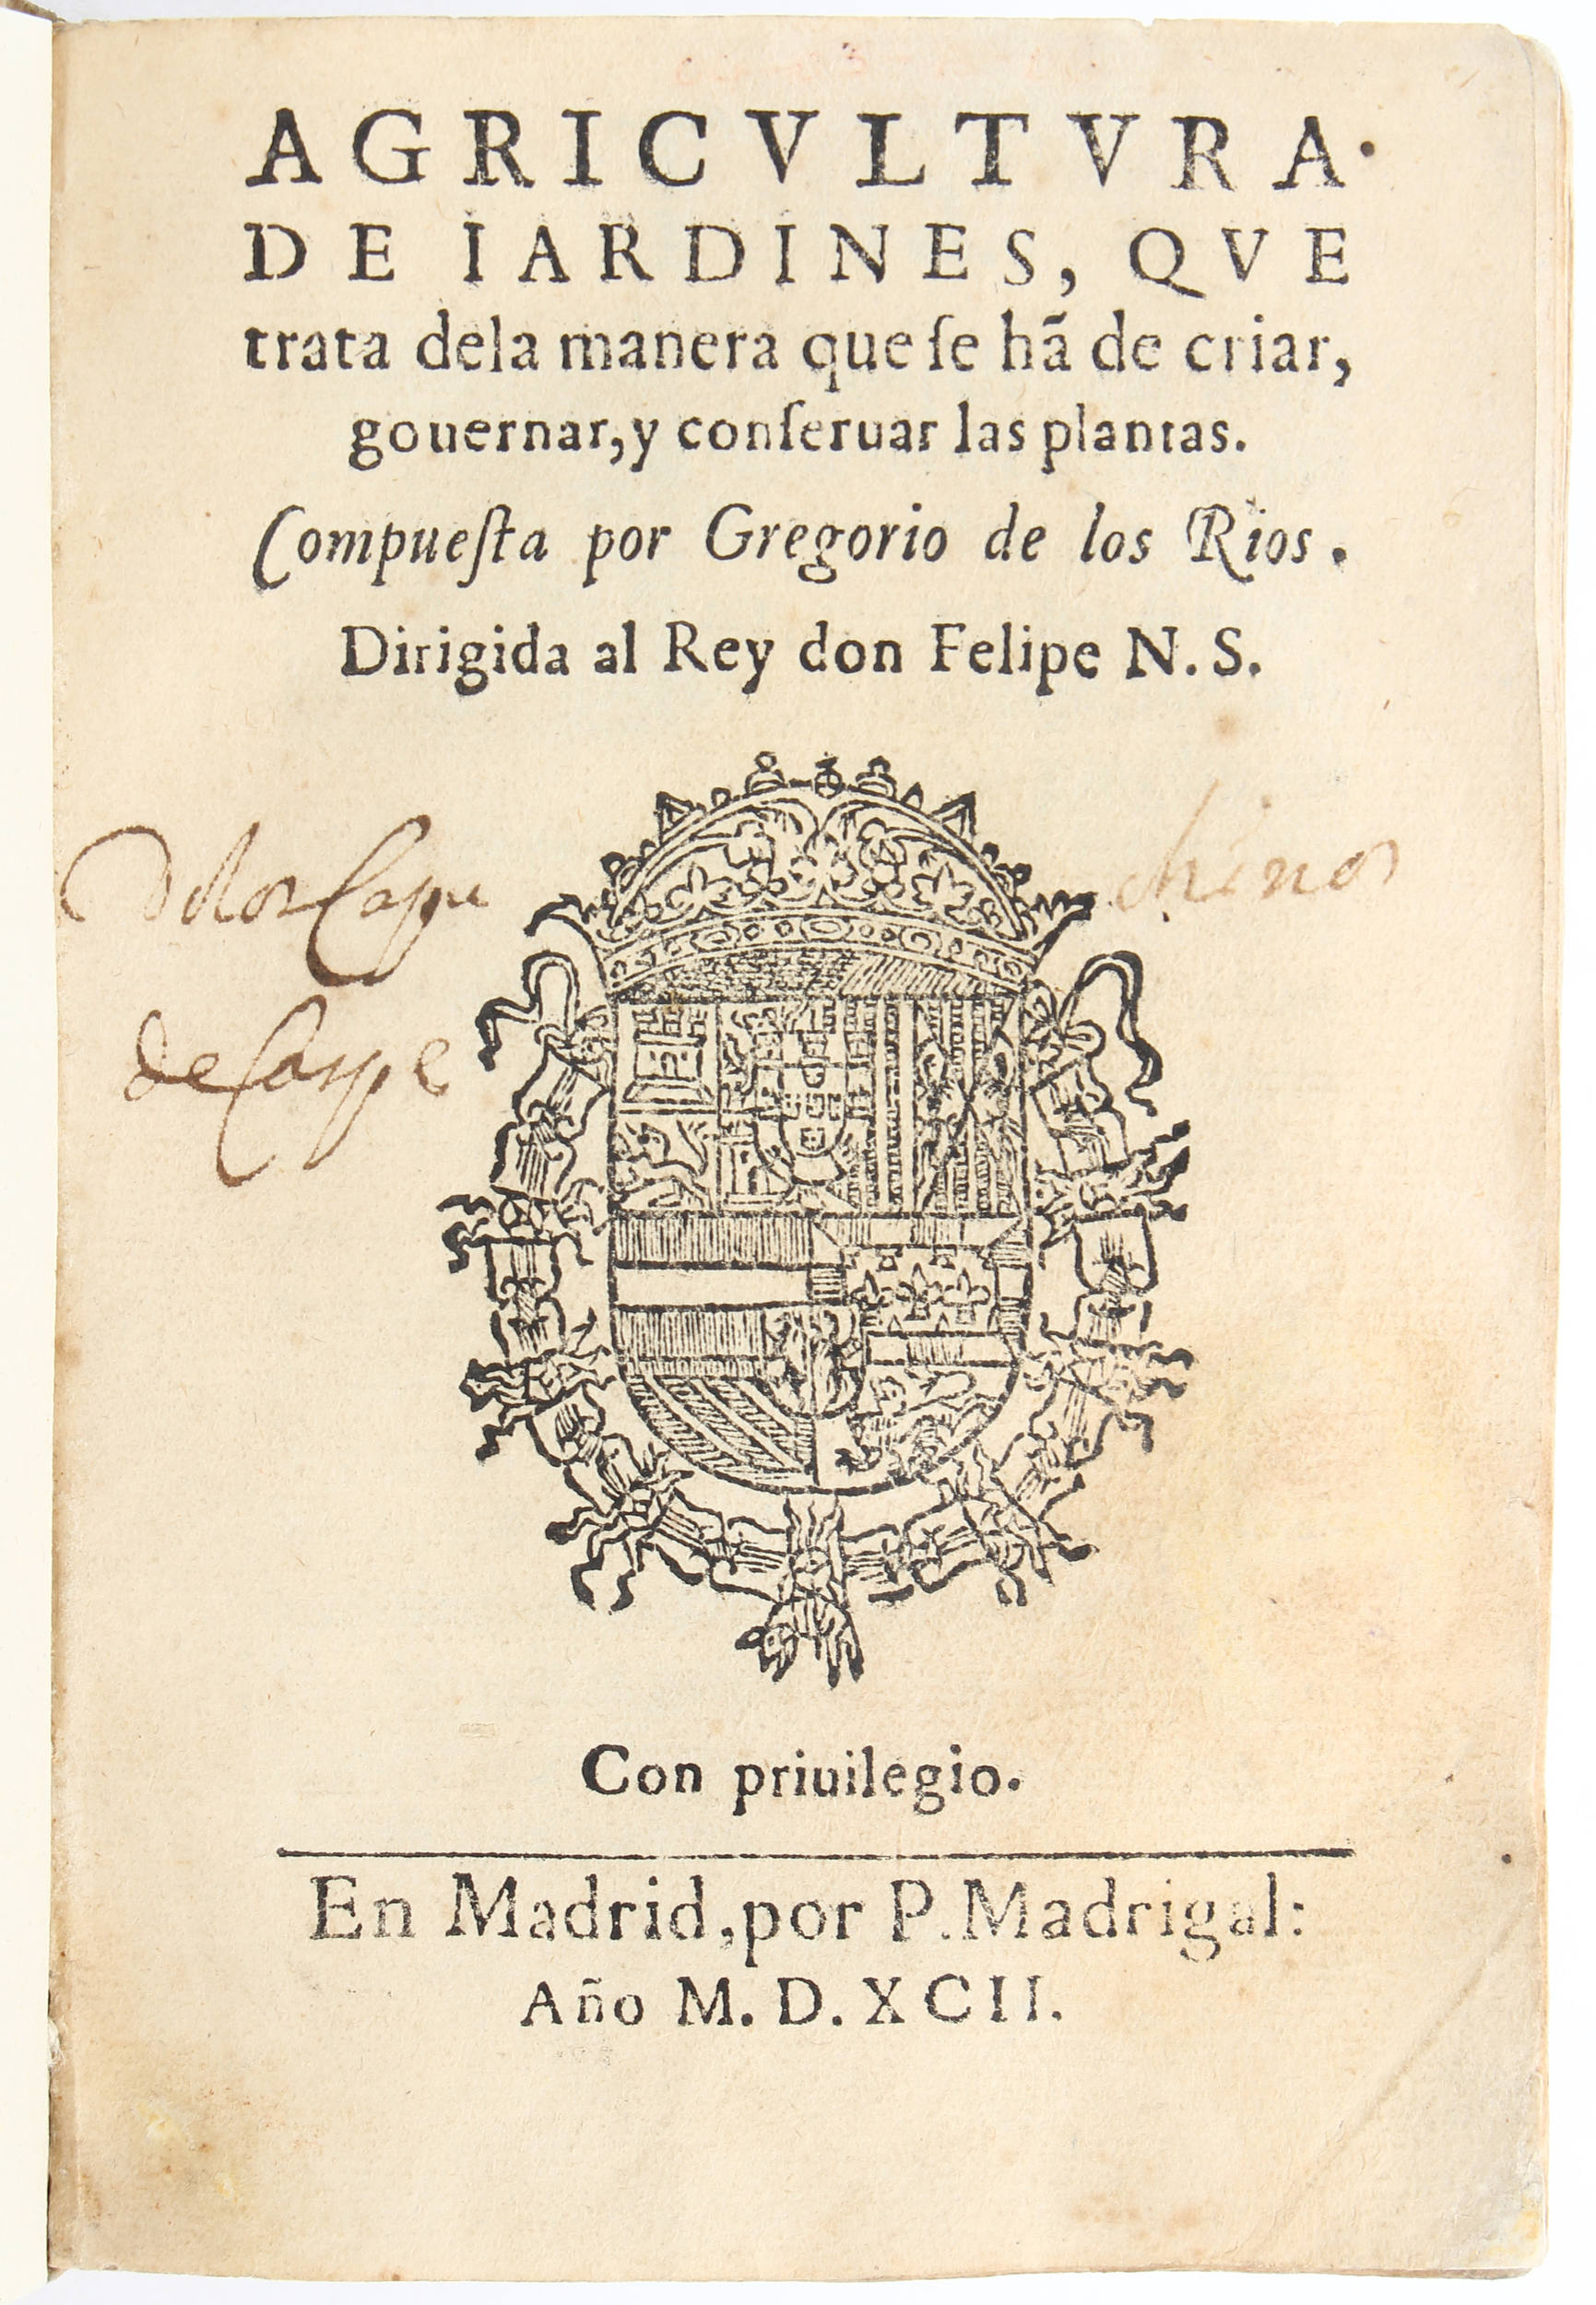 AGRICVLTVRA.
DE IARDINES, QVE
trata dela manera que ſe hã de criar,
gouernar, y conſeruar las plantas.
Compueſta por Gregorio de los Rios.
Dirigida al Rey don Felipe N. S.
D los Capu chinos
de Caspe
Con priuilegio.
En Madrid, por P. Madrigal:
Año M. D. XCII.